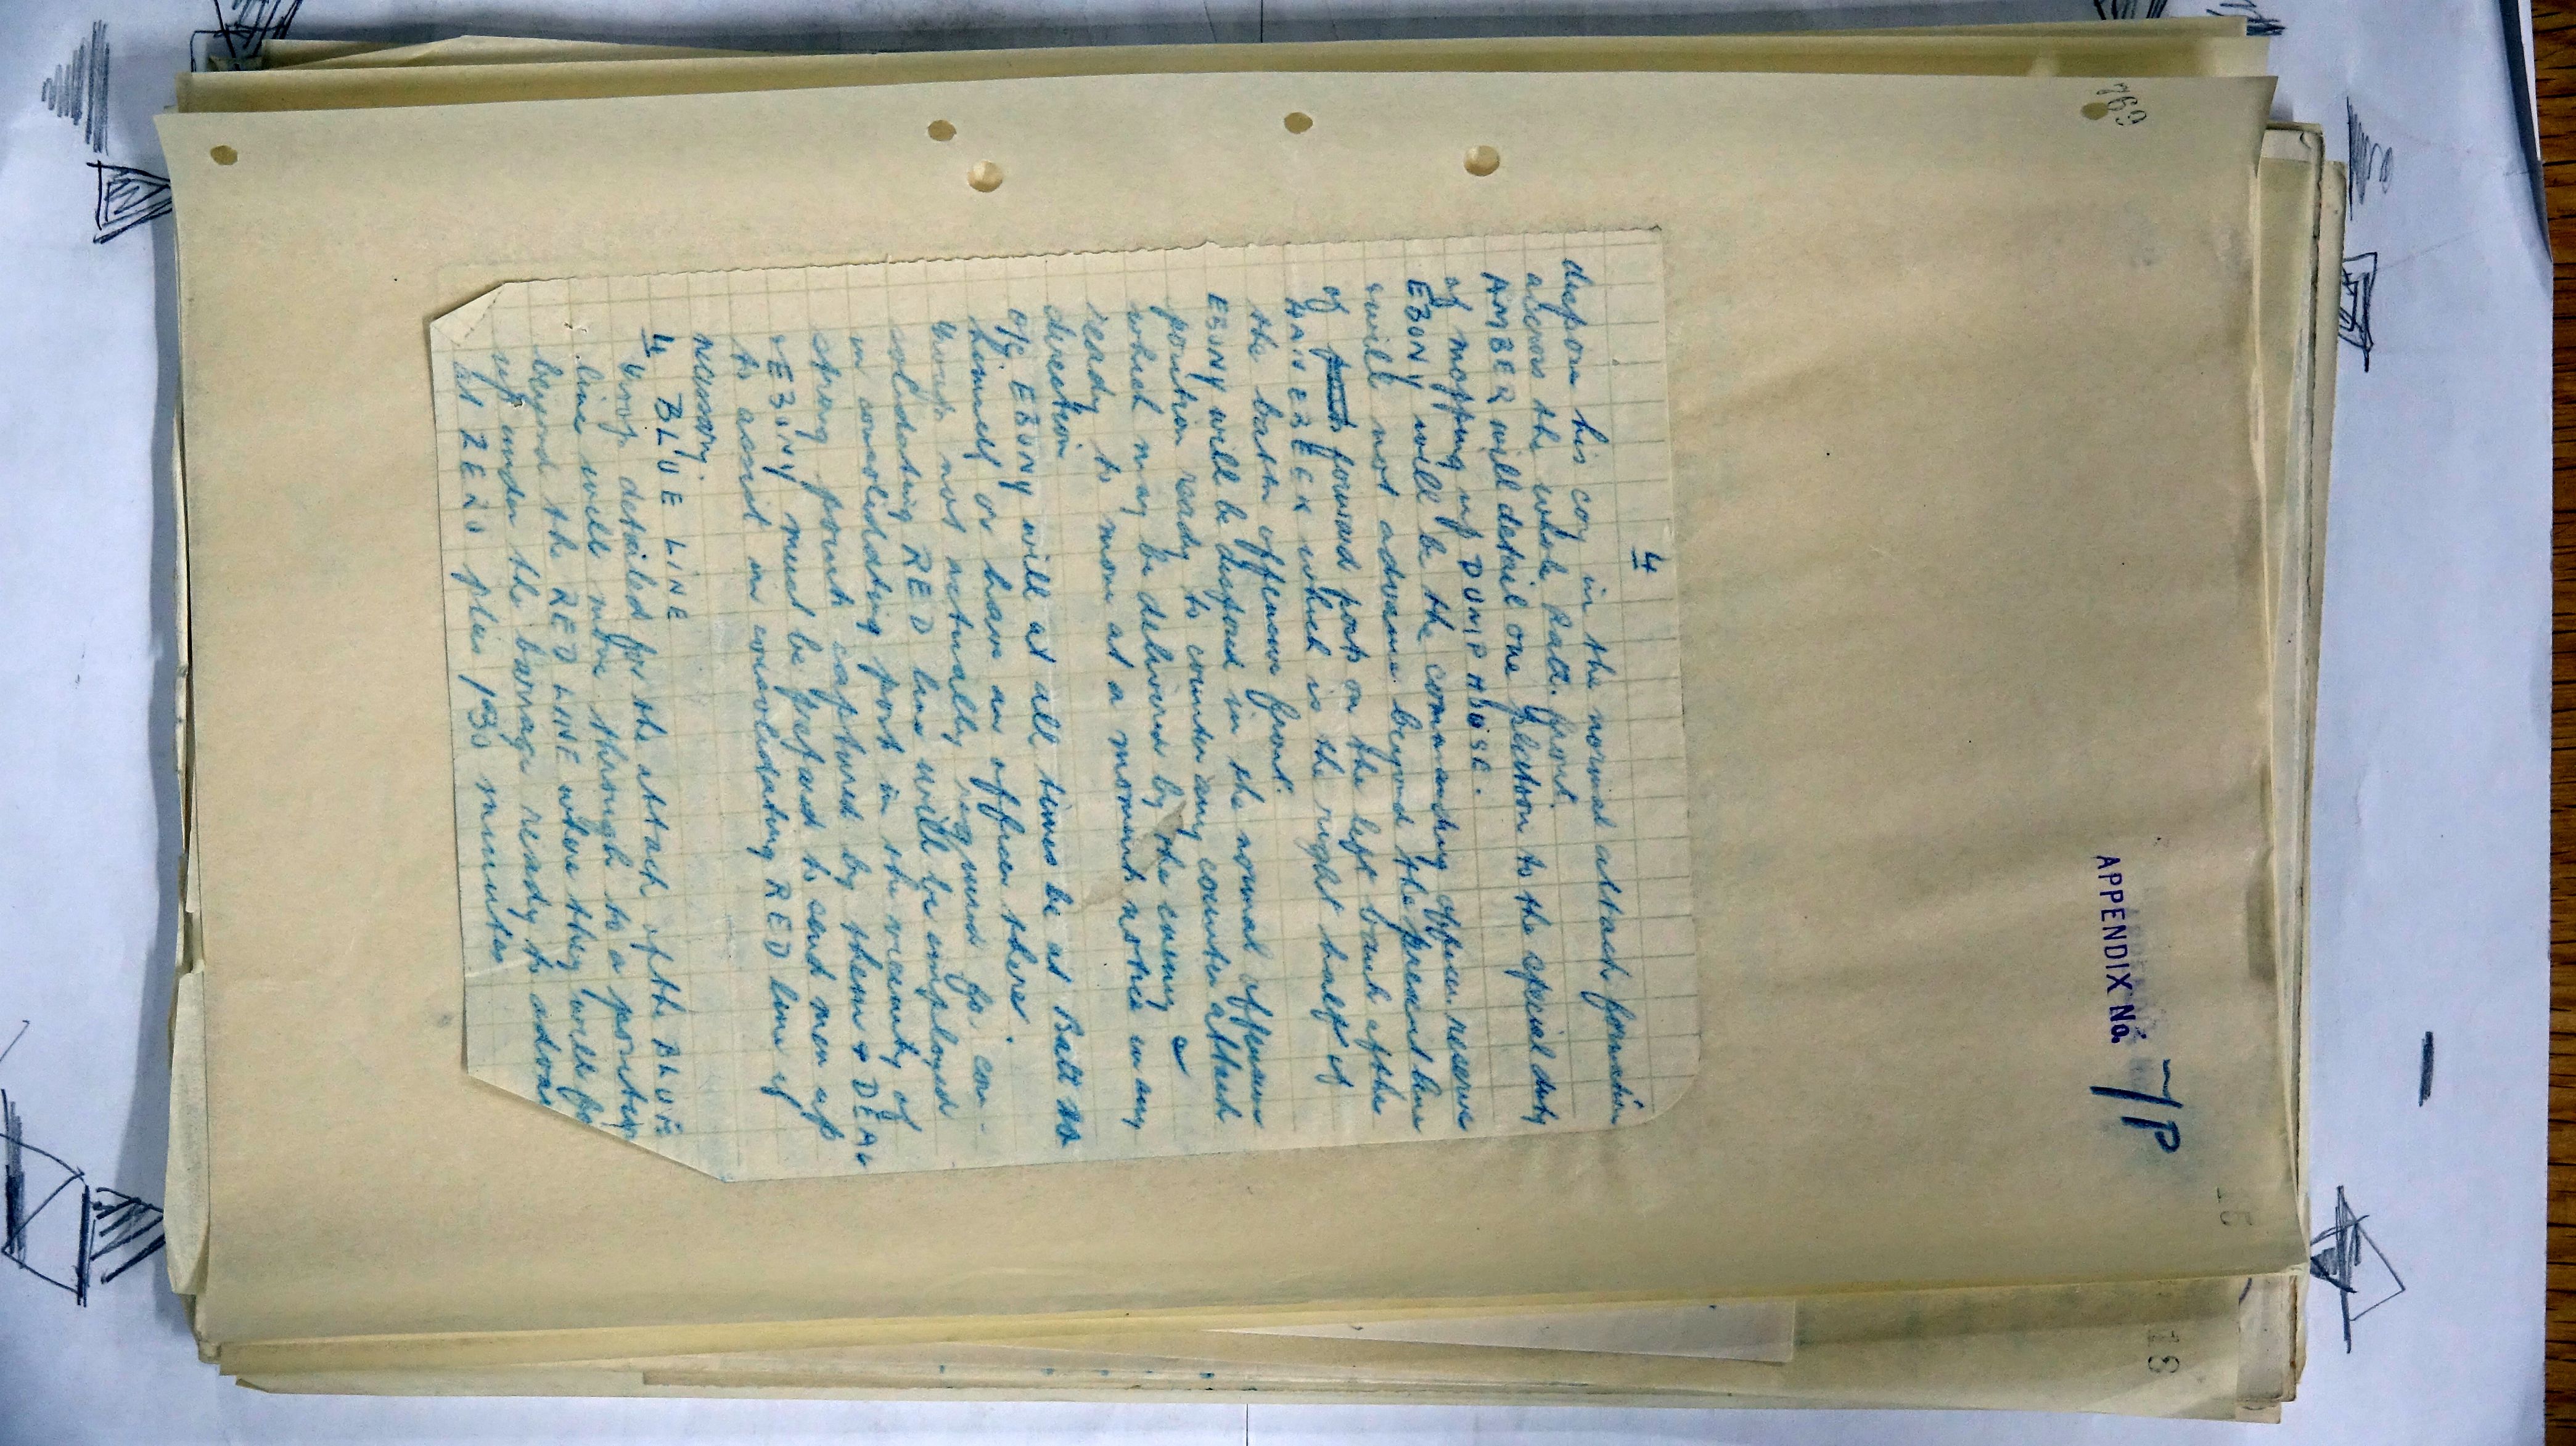 769
APPENDIX No. 7P
4
dispose his coy in the normal attack formation
across the whole Batt. front.
AMBER will detail one platoon to the special duty
of mopping up DUMP HOUSE.
EBONY will be the commanding officers reserve
will not advance beyond the present line
of forward posts on the left bank of the
HANEBEEK which is the right half of
the battn offensive front.
EBONY will be disposed in the normal offensive
position ready to counter any counter attack
which may be delivered by the enemy &
ready to move at a moments notice in any
direction
O/C EBONY will at all times be at Batt HQ
himself or have an officer there.
troops not actually required for con-
solidating RED line will be employed
in consolidating posts in the vicinity of
strong points captured by them &
EBONY must be prepared to send men up
to assist in consolidating RED line if
necessary.
4 BLUE LINE
troops detailed for the attack of the BLUE
line will move through to a position
beyond the RED LINE where they will
up under the barrage ready to advance
at ZERO plus 130 minutes
18